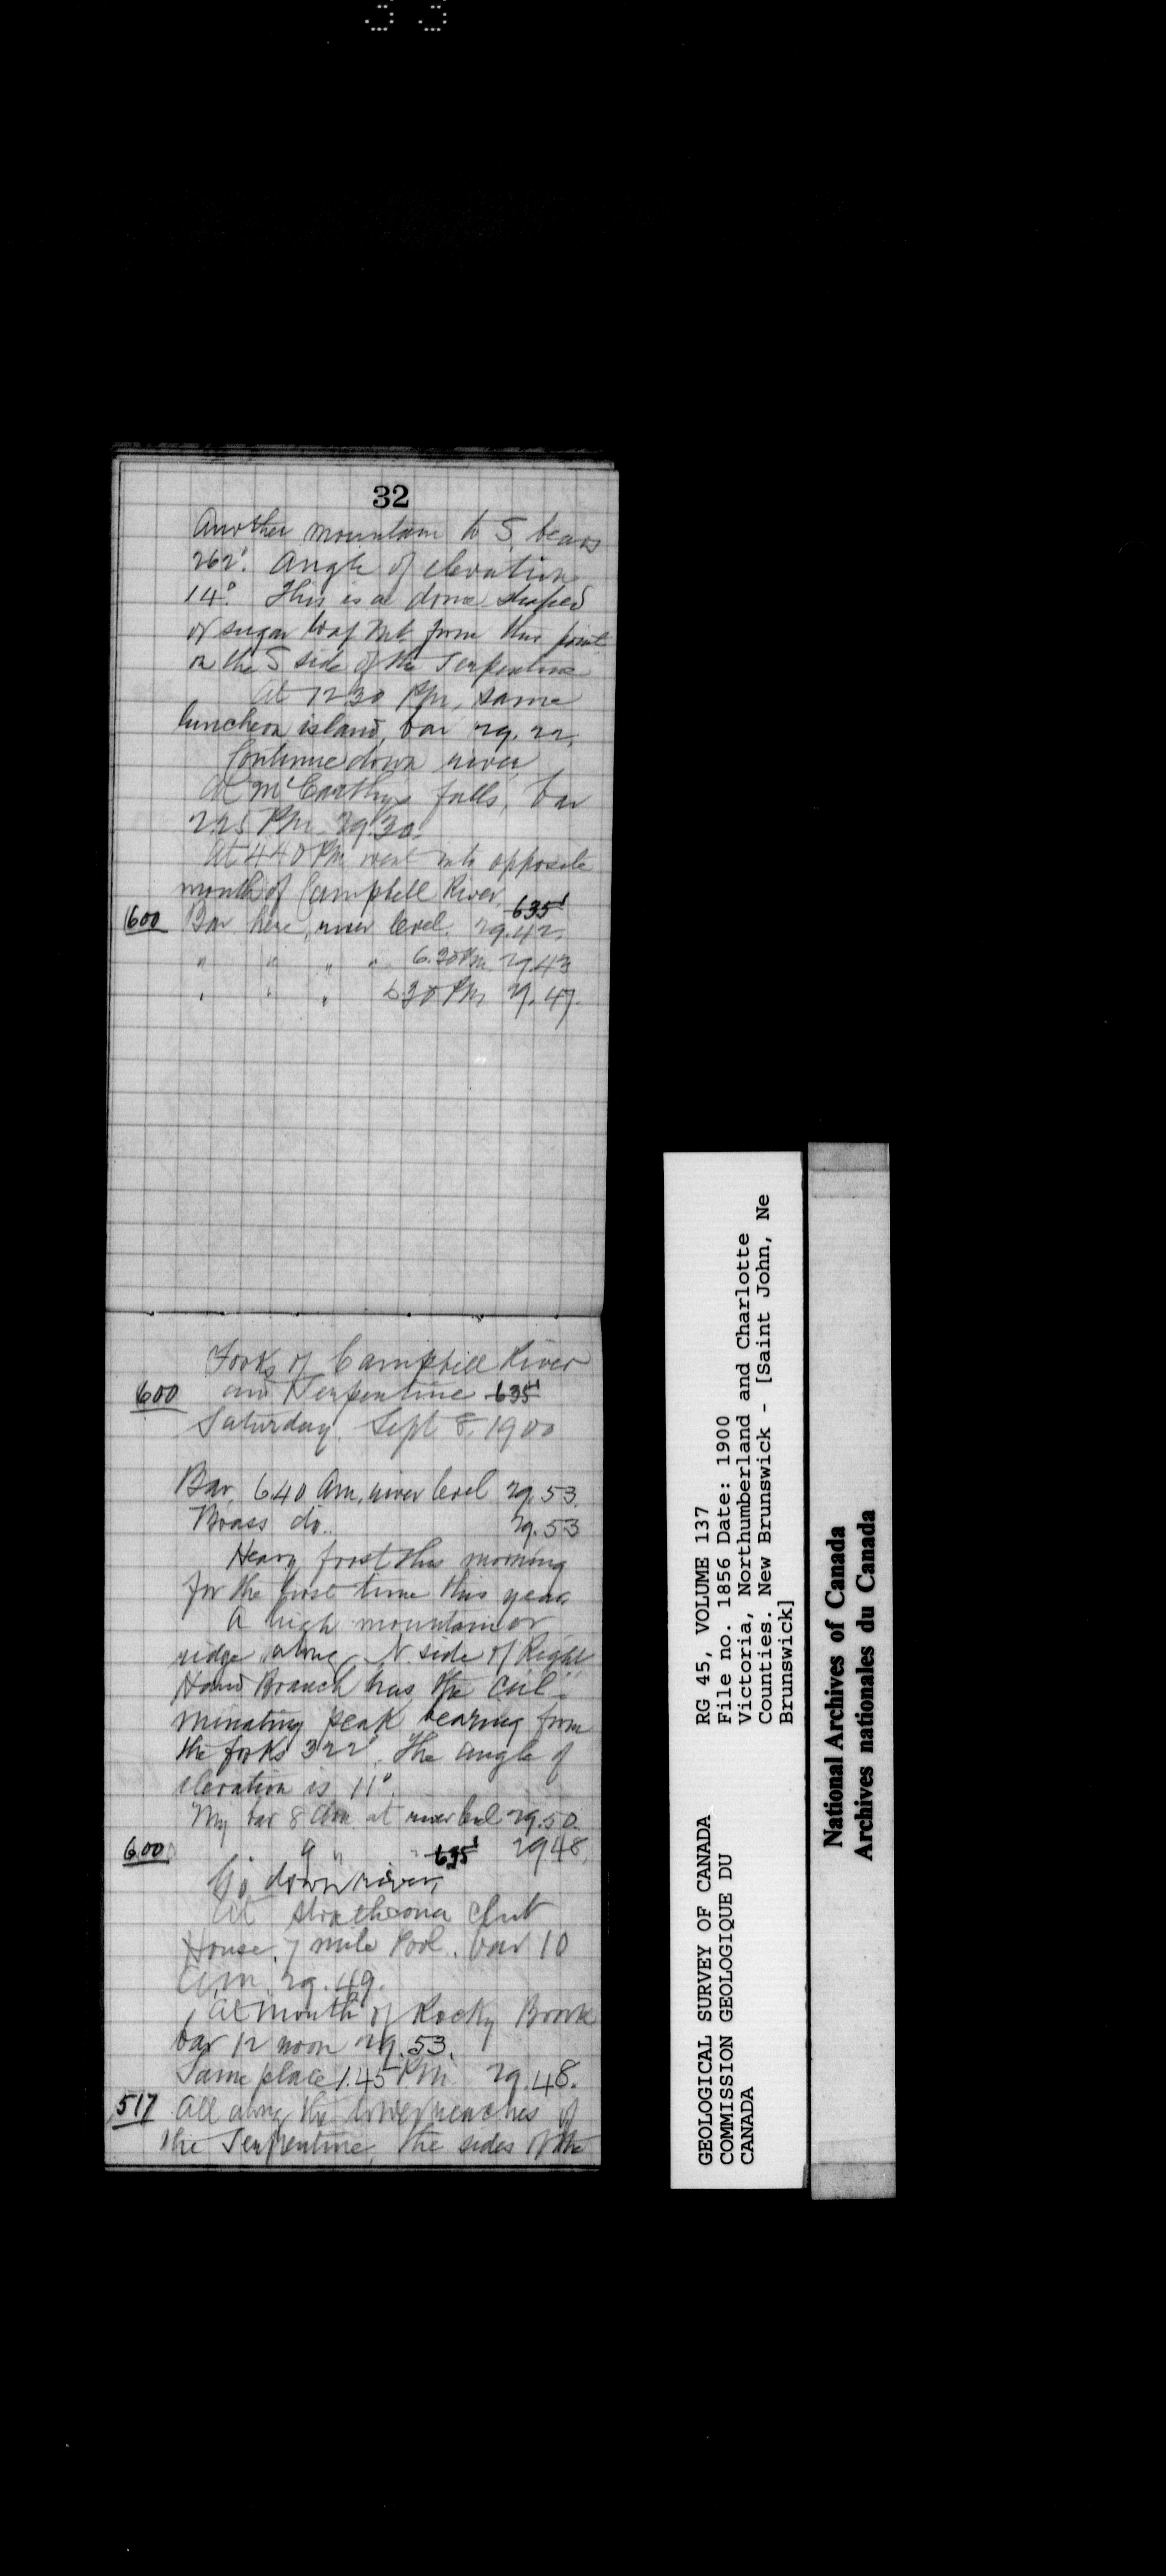 32
Another mountain to S. bears
262°. Angle of elevation
14°. This is a dome-shaped
or sugar loaf Mt. from this point
on the S side of the Serpentine
At 12 30 PM, same
luncheon island, bar 29.22.
Continue down river.
At McCarthy's falls, bar
2.25 PM 29.30.
At 4 40 PM went into opposite
mouth of Campbell River.
635'
1600 Bar here, river level. 29.42.
" " " " 6.30 PM. 29.43
" " " 30 PM 29.47.
Forks of Campbell River
600 and Serpentine 635'
Saturday. Sept 8, 1900
Bar, 6 40 Am, river level 29.53.
Brass do. 29.53
Heavy frost this morning
for the first time this year.
A high mountain or
ridge along N. side of Right
Hand Branch has the cul-
minating peak bearing from
the forks 322°. The angle of
elevation is 11°.
My bar 8 Am at river level 29.50.
600 9 " " 635' 29 48.
Go down river,
At Strathcona Club
House, 7 mile Pool. bar 10
a.m. 29.49.
At mouth of Rocky Brook
bar 12 noon 29.53.
Same place 1.45 P.M. 29.48.
517 All along the lower reaches of
the Serpentine, the sides of the
RG 45, VOLUME 137
File no. 1856 Date: 1900
Victoria, Northumberland and Charlotte
Counties. New Brunswick - [Saint John, Ne
Brunswick]
GEOLOGICAL SURVEY OF CANADA
COMMISSION GEOLOGIQUE DU
CANADA
National Archives of Canada
Archives nationales du Canada